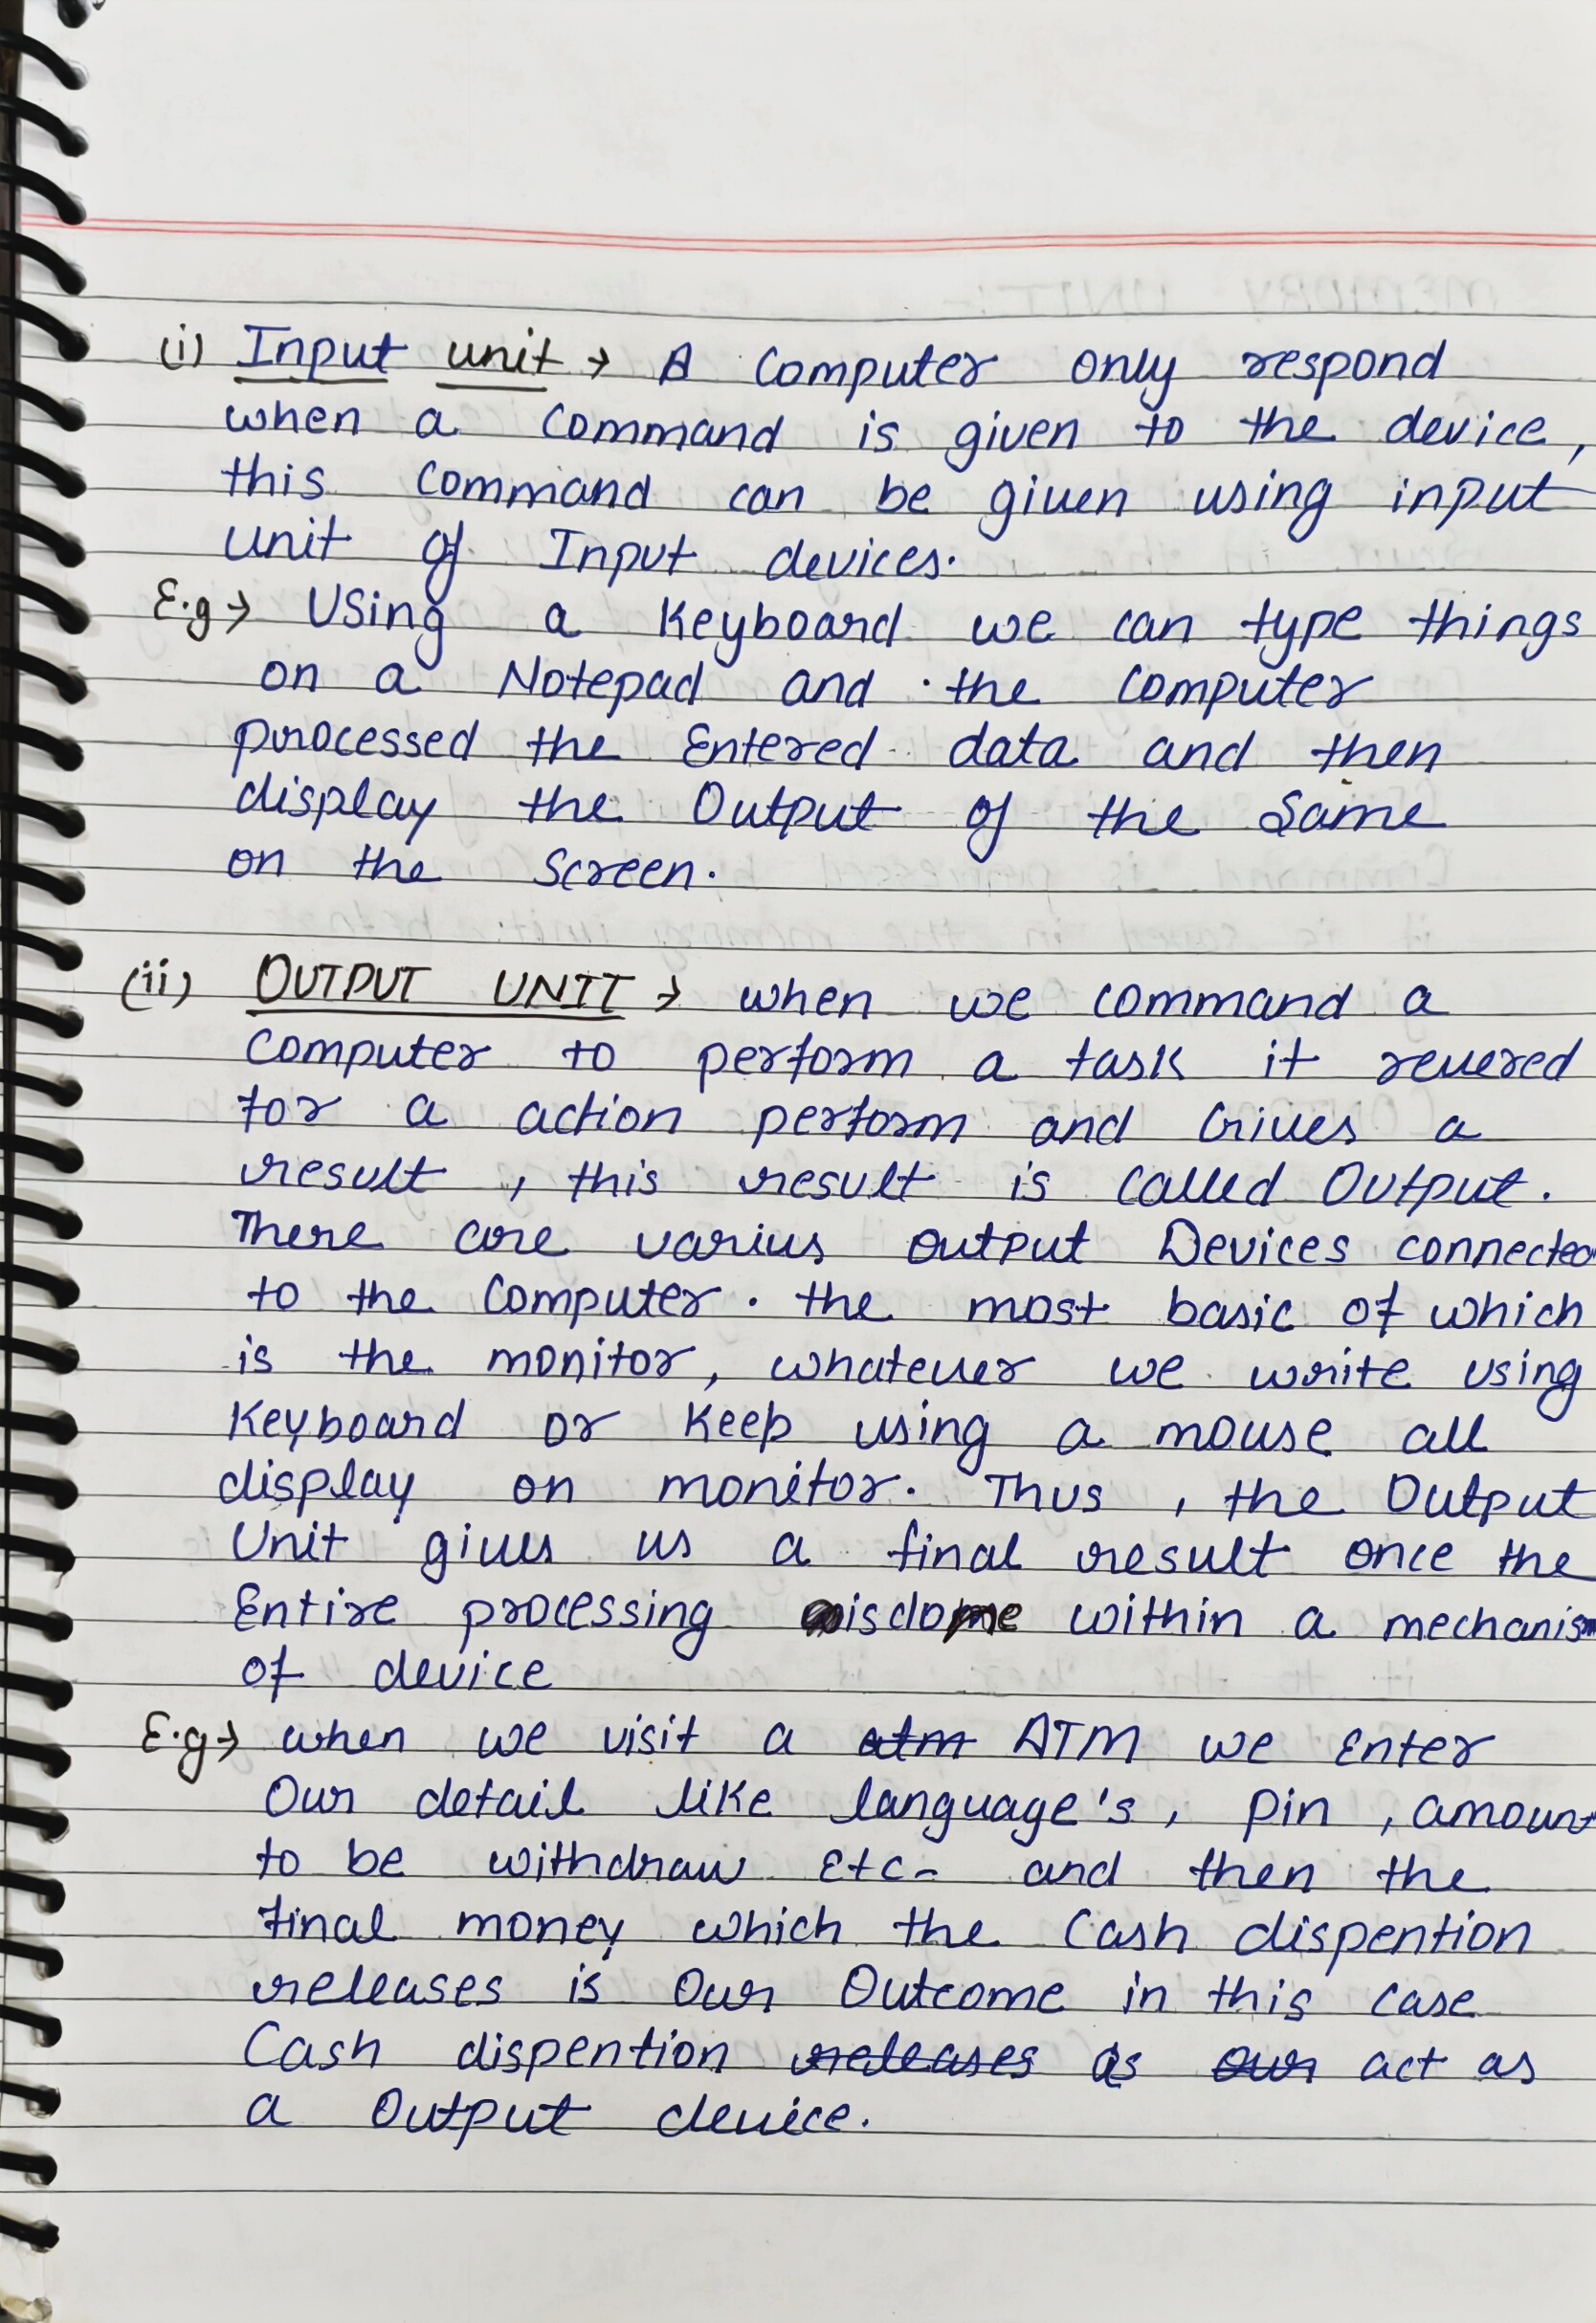 (i) Input unit → A Computer only respond
when a Command is given to the device,
this Command can be given using input
unit of Input devices.
E.g → Using a Keyboard we can type things
on a Notepad and the Computer
processed the Entered data and then
display the Output of the Same
on the Screen.
(ii) OUTPUT UNIT → when we command a
Computer to perform a task it revered
for a action perform and Gives a
result, this result is Called Output.
There are varius output Devices connected
to the Computer. the most basic of which
is the monitor, whatever we write using
Keyboard or Keep using a mouse all
display on monitor. Thus, the Output
Unit gives us a final result once the
Entire processing is done within a mechanism
of device
E.g → when we visit a atm ATM we Enter
Our detail like language's, Pin, amount
to be withdraw Etc- and then the
final money which the Cash dispention
releases is Our Outcome in this case
Cash dispention releases as our act as
a Output device.